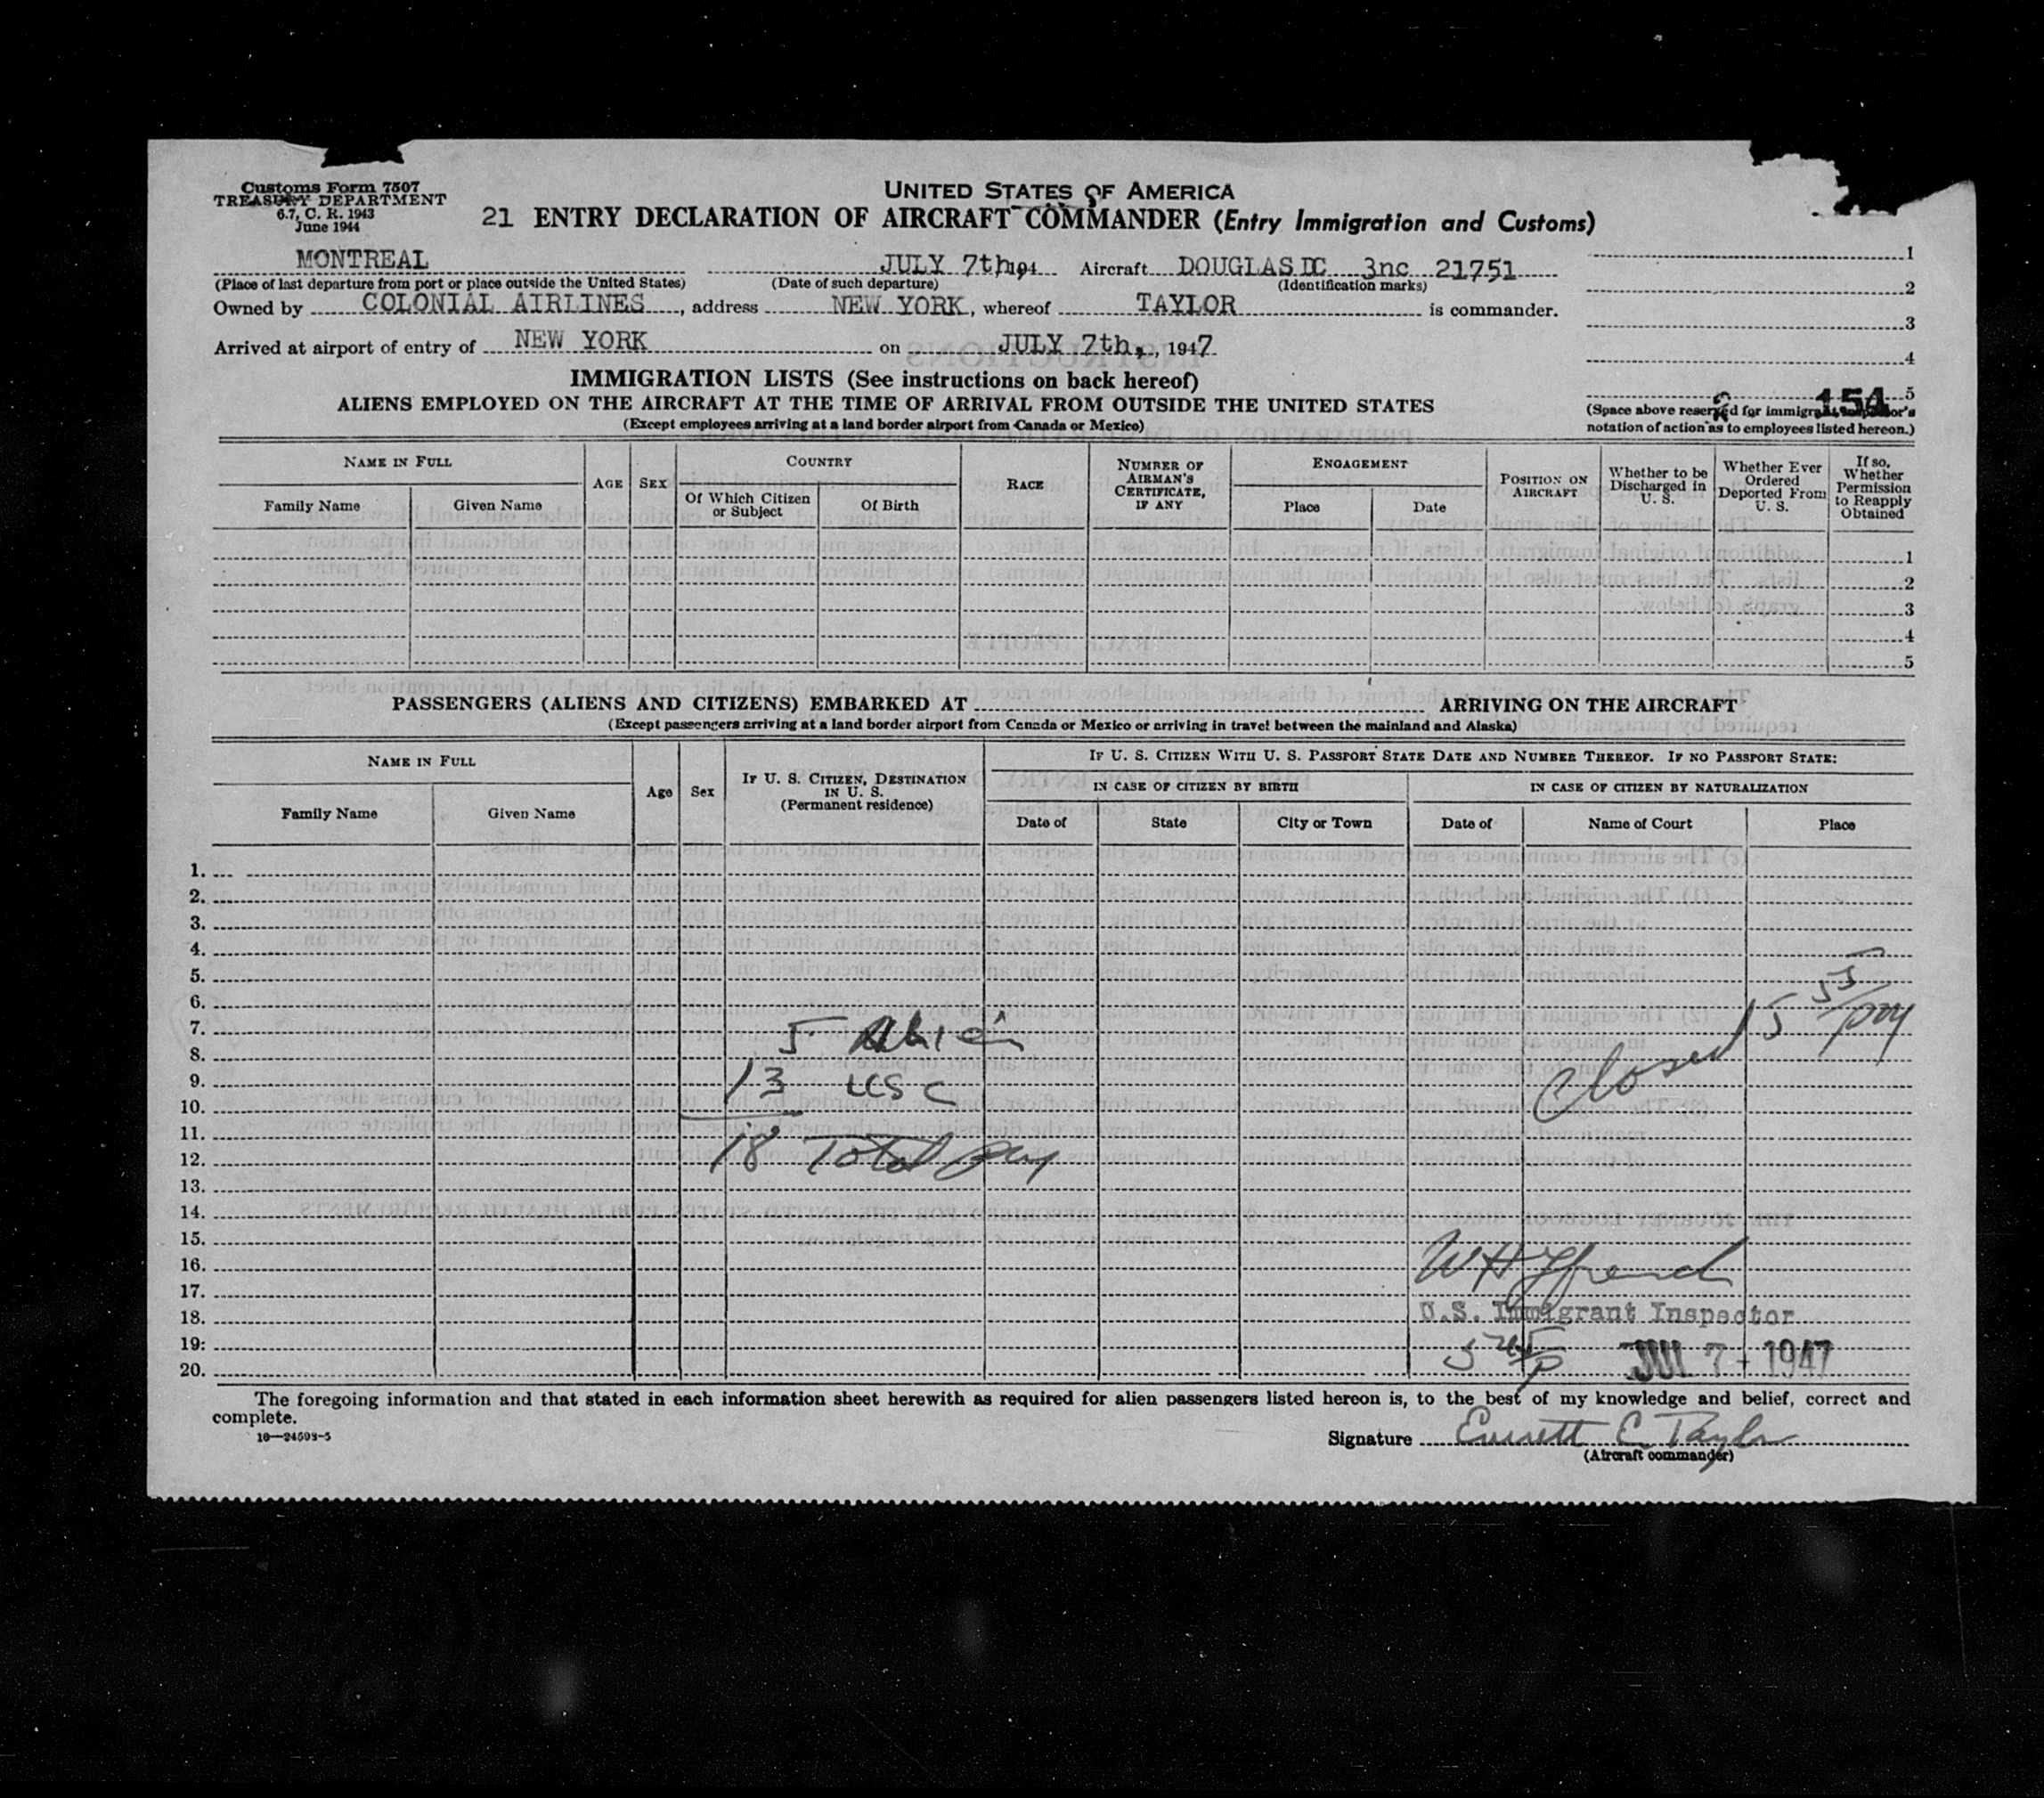 Customs Form 7507
TREASURY DEPARTMENT
6.7, C. R. 1943
June 1944
UNITED STATES OF AMERICA
21 ENTRY DECLARATION OF AIRCRAFT COMMANDER (Entry Immigration and Customs)
MONTREAL JULY 7th, 194 Aircraft DOUGLAS DC 3nc 21751
(Place of last departure from port or place outside the United States) (Date of such departure) (Identification marks)
Owned by COLONIAL AIRLINES, address NEW YORK, whereof TAYLOR is commander.
Arrived at airport of entry of NEW YORK on JULY 7th, 1947
1
2
3
4
5
154
(Space above reserved for immigrant inspector's
notation of action as to employees listed hereon.)
IMMIGRATION LISTS (See instructions on back hereof)
ALIENS EMPLOYED ON THE AIRCRAFT AT THE TIME OF ARRIVAL FROM OUTSIDE THE UNITED STATES
(Except employees arriving at a land border airport from Canada or Mexico)
NAME IN FULL
Family Name Given Name
AGE SEX
COUNTRY
Of Which Citizen or Subject Of Birth
RACE
NUMBER OF AIRMAN'S CERTIFICATE, IF ANY
ENGAGEMENT
Place Date
POSITION ON AIRCRAFT
Whether to be Discharged in U. S.
Whether Ever Ordered Deported From U. S.
If so, Whether Permission to Reapply Obtained
1
2
3
4
5
PASSENGERS (ALIENS AND CITIZENS) EMBARKED AT ARRIVING ON THE AIRCRAFT
(Except passengers arriving at a land border airport from Canada or Mexico or arriving in travel between the mainland and Alaska)
NAME IN FULL
Family Name Given Name
Age Sex
IF U. S. CITIZEN, DESTINATION IN U. S.
(Permanent residence)
IF U. S. CITIZEN WITH U. S. PASSPORT STATE DATE AND NUMBER THEREOF. IF NO PASSPORT STATE:
IN CASE OF CITIZEN BY BIRTH IN CASE OF CITIZEN BY NATURALIZATION
Date of State City or Town Date of Name of Court Place
1.
2.
3.
4.
5.
6.
7. 5 Alien
8. Closed
9. 13 USC
10.
11.
12. 18 Total
13.
14.
15.
16.
17.
18. U.S. Immigrant Inspector
19. JUL 7 - 1947
20.
The foregoing information and that stated in each information sheet herewith as required for alien passengers listed hereon is, to the best of my knowledge and belief, correct and
complete.
16—24593-5
Signature Everett E. Taylor
(Aircraft commander)